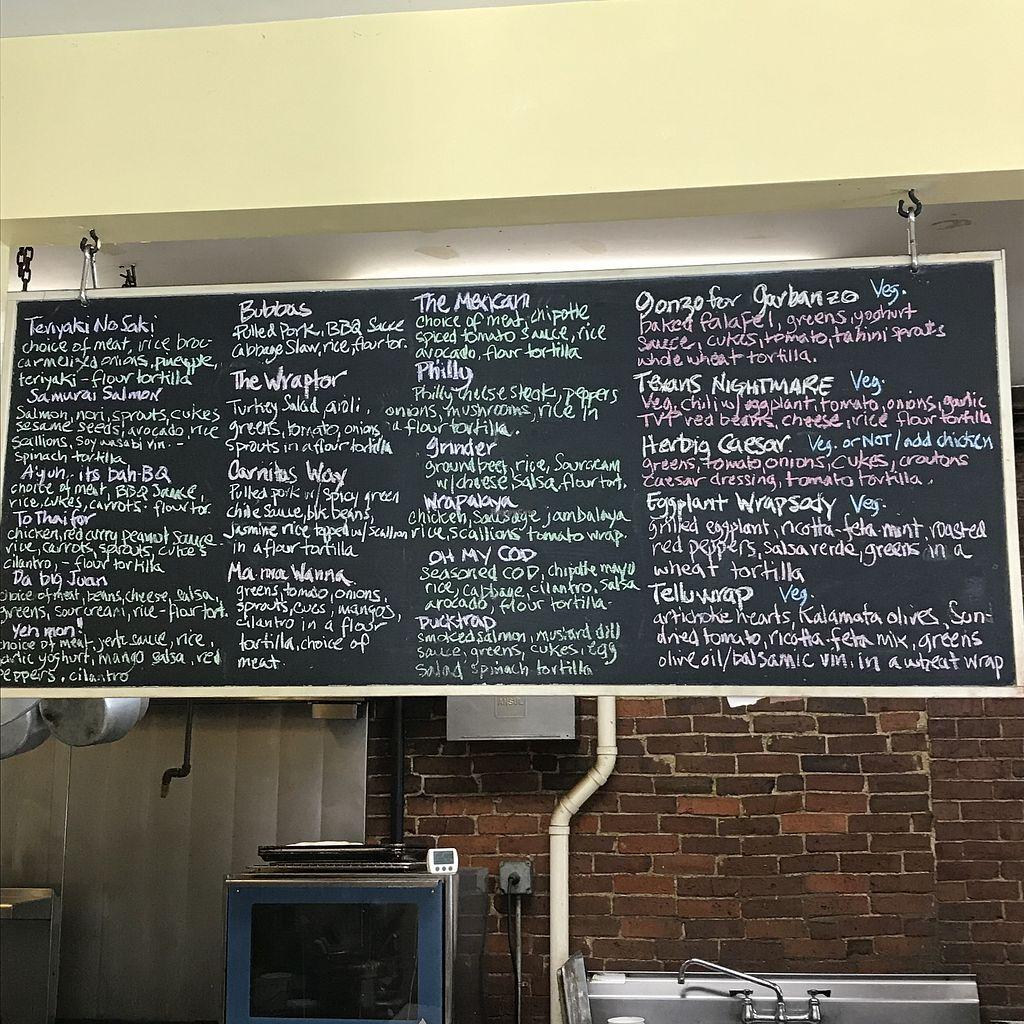 Teriyaki No Saki
choice of meat, rice broc-
carmelized onions, pineapple,
teriyaki - flour tortilla
Samurai Salmon
Salmon, nori, sprouts, cukes
sesame seeds, avocado, rice
scallions, soy wasabi vin. -
spinach tortilla
Ayuh, its bah-BQ
choice of meat, BBQ sauce,
rice, cukes, carrots - flour tor.
To Thai for
chicken, red curry peanut sauce
rice, carrots, sprouts, cukes
cilantro, - flour tortilla
Da big Juan
choice of meat, beans, cheese, salsa,
greens, sour cream, rice - flour tort.
Yeh mon!
choice of meat, jerk sauce, rice,
garlic yoghurt, mango salsa, red
peppers, cilantro
Bubbas
Pulled Pork, BBQ Sauce
cabbage slaw, rice, flour tor.
The Wraptor
Turkey Salad aioli,
greens, tomato, onions
sprouts in a flour tortilla
Carnitas Way
Pulled pork w/ spicy green
chile sauce, blk beans,
jasmine rice topped w/ scallion
in a flour tortilla
Ma nna Wanna
greens, tomato, onions,
sprouts, cukes, mangos,
cilantro in a flour
tortilla, choice of
meat.
The Mexican
choice of meat, chipotle
spiced tomato sauce, rice
avocado, flour tortilla
Philly
Philly cheese steak, peppers
onions, mushrooms, rice in
a flour tortilla.
Grinder
ground beef, rice, sour cream
w/ cheese, salsa, flour tort.
Wrapalaya
chicken, sausage, jambalaya
rice, scallions tomato wrap.
OH MY COD
seasoned COD, chipotle mayo
rice, cabbage, cilantro, salsa
avocado, flour tortilla
Ducktrap
smoked salmon, mustard dill
sauce, greens, cukes, egg
salad spinach tortilla
Gonzo for Garbanzo Veg.
baked falafel, greens, yoghurt
sauce, cukes, tomato, tahini sprouts
whole wheat tortilla.
Texans NIGHTMARE Veg.
Veg. chili w/ eggplant, tomato, onions, garlic
TVP red beans, cheese, rice flour tortilla
Herbig Caesar Veg. or NOT/add chicken
greens, tomato onions, cukes, croutons
caesar dressing, tomato tortilla.
Eggplant Wrapsody Veg.
grilled eggplant, ricotta-feta mint, roasted
red peppers, salsa verde, greens in a
wheat tortilla
Telluwrap Veg.
artichoke hearts, Kalamata olives, Sun-
dried tomato, ricotta-feta mix, greens
olive oil/balsamic vin. in a wheat wrap
ANSUL